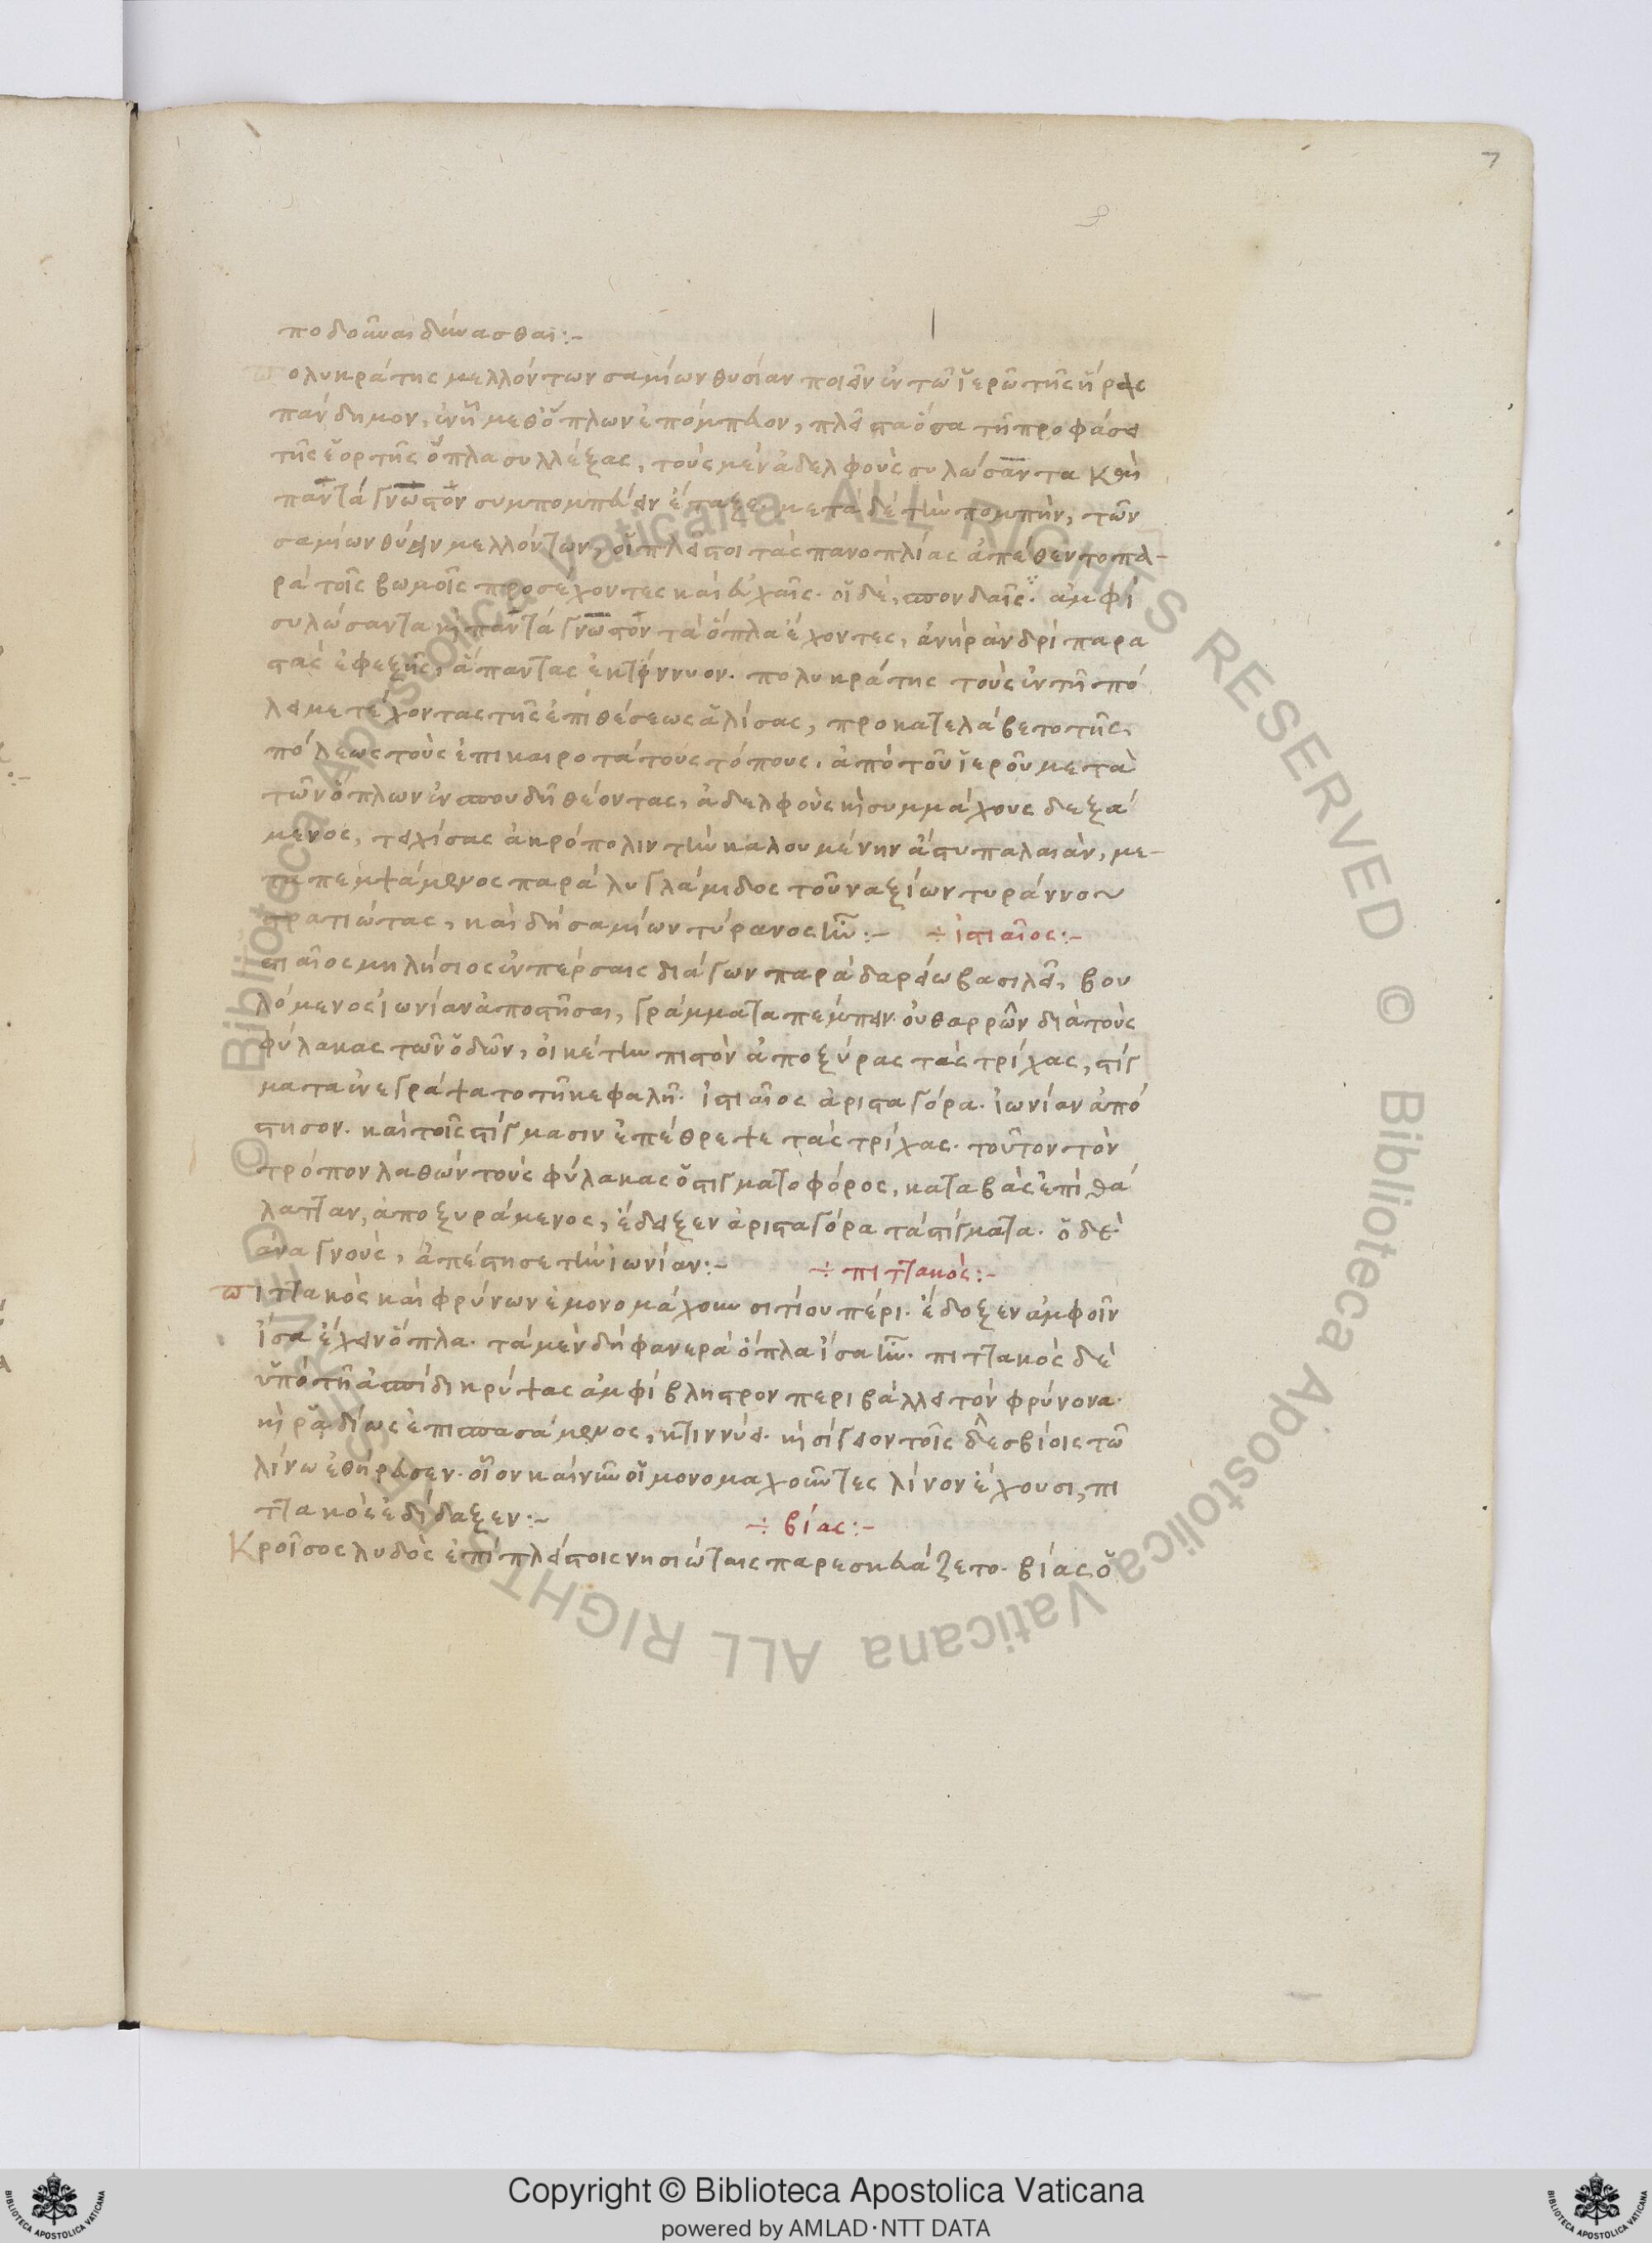 7
ποδοῦναι δύνασθαι:-
πολυκράτης μελλόντων σαμίων θυσίαν ποιεῖν ἐν τῶ ἱερῶ τῆς ἥρας
πάνδημον, ἐν ἧ μεθ' ὅπλων ἐπόμπευον, πλεῖστα ὅσα τῆ προφάσει
τῆς ἑορτῆς ὅπλα συλλέξας, τοὺς μὲν ἀδελφοὺς συλώσαντα καὶ
παντάγνωστον συμπομπεύειν ἔταξε. μετὰ δὲ τὴν πομπὴν, τῶν
σαμίων θύειν μελλόντων, οἱ πλεῖστοι τὰς πανοπλίας ἀπέθεντο πα-
ρὰ τοῖς βωμοῖς προσέχοντες καὶ εὐχαῖς. οἱ δὲ, σπονδαῖς. ἀμφὶ
συλώσαντα καὶ παντάγνωστον τὰ ὅπλα ἔχοντες, ἀνὴρ ἀνδρὶ παρα
στὰς ἐφεξῆς, ἅπαντας ἐκτίννυον. πολυκράτης τοὺς ἐν τῆ πό
λει μετέχοντας τῆς ἐπιθέσεως ἁλίσας, προκατελάβετο τῆς
πόλεως τοὺς ἐπικαιροτάτους τόπους. ἀπὸ τοῦ ἱεροῦ μετὰ
τῶν ὅπλων ἐν σπουδῆ θέοντας, ἀδελφοὺς καὶ συμμάχους δεξά
μενος, τειχίσας ἀκρόπολιν τὴν καλουμένην ἀστυπάλαιαν, με-
ταπεμψάμενος παρὰ λυγλάμιδος τοῦ ναξίων τυράννου
στρατιώτας, καὶ δὴ σαμίων τύρανος ἦν:- ÷ ἱστιαῖος:-
στιαῖος μηλήσιος ἐν πέρσαις διάγων παρὰ δαρείω βασιλεῖ, βου
λόμενος ἰωνίαν ἀποστῆσαι, γράμματα πέμπειν οὐ θαρρῶν διὰ τοὺς
φύλακας τῶν ὁδῶν, οἰκέτην πιστὸν ἀποξύρας τὰς τρίχας, στίγ
ματα ἐνεγράψατο τῆ κεφαλῆ. ἱστιαῖος ἀρισταγόρα. ἰωνίαν ἀπό
στησον. καὶ τοῖς στίγμασιν ἐπέθρεψε τὰς τρίχας. τοῦτον τὸν
τρόπον λαθὼν τοὺς φύλακας ὁ στιγματοφόρος, καταβὰς ἐπὶ θά
λατταν, ἀποξυράμενος, ἔδειξεν ἀρισταγόρα τὰ στίγματα. ὁ δὲ
ἀναγνοὺς, ἀπέστησε τὴν ἰωνίαν:- ÷ πιττακός:-
πιττακὸς καὶ φρύνων ἐμονομάχουν σιτίου πέρι. ἔδοξεν ἀμφοῖν
ἴσα ἔχειν ὅπλα. τὰ μὲν δὴ φανερὰ ὅπλα ἴσα ἦν. πιττακὸς δὲ
ὑπὸ τῆ ἀσπίδι κρύψας ἀμφίβληστρον περιβάλλει τὸν φρύνονα.
καὶ ῥαδίως ἐπισπασάμενος, κτιννύει. καὶ σίγειον τοῖς λεσβίοις τῶ
λίνω ἐθήρασεν. οἷον καὶ νῦν οἱ μονομαχοῦντες λίνον ἔχουσι, πι
ττακὸς ἐδίδαξεν:- ÷ βίας:-
Κροῖσος λυδὸς ἐπίπλείστοις νησιώταις παρεσκευάζετο. βίας ὁ
© Biblioteca Apostolica Vaticana ALL RIGHTS RESERVED © Biblioteca Apostolica Vaticana ALL RIGHTS RESERVED
Copyright © Biblioteca Apostolica Vaticana
powered by AMLAD·NTT DATA
BIBLIOTECA APOSTOLICA VATICANA
BIBLIOTECA APOSTOLICA VATICANA